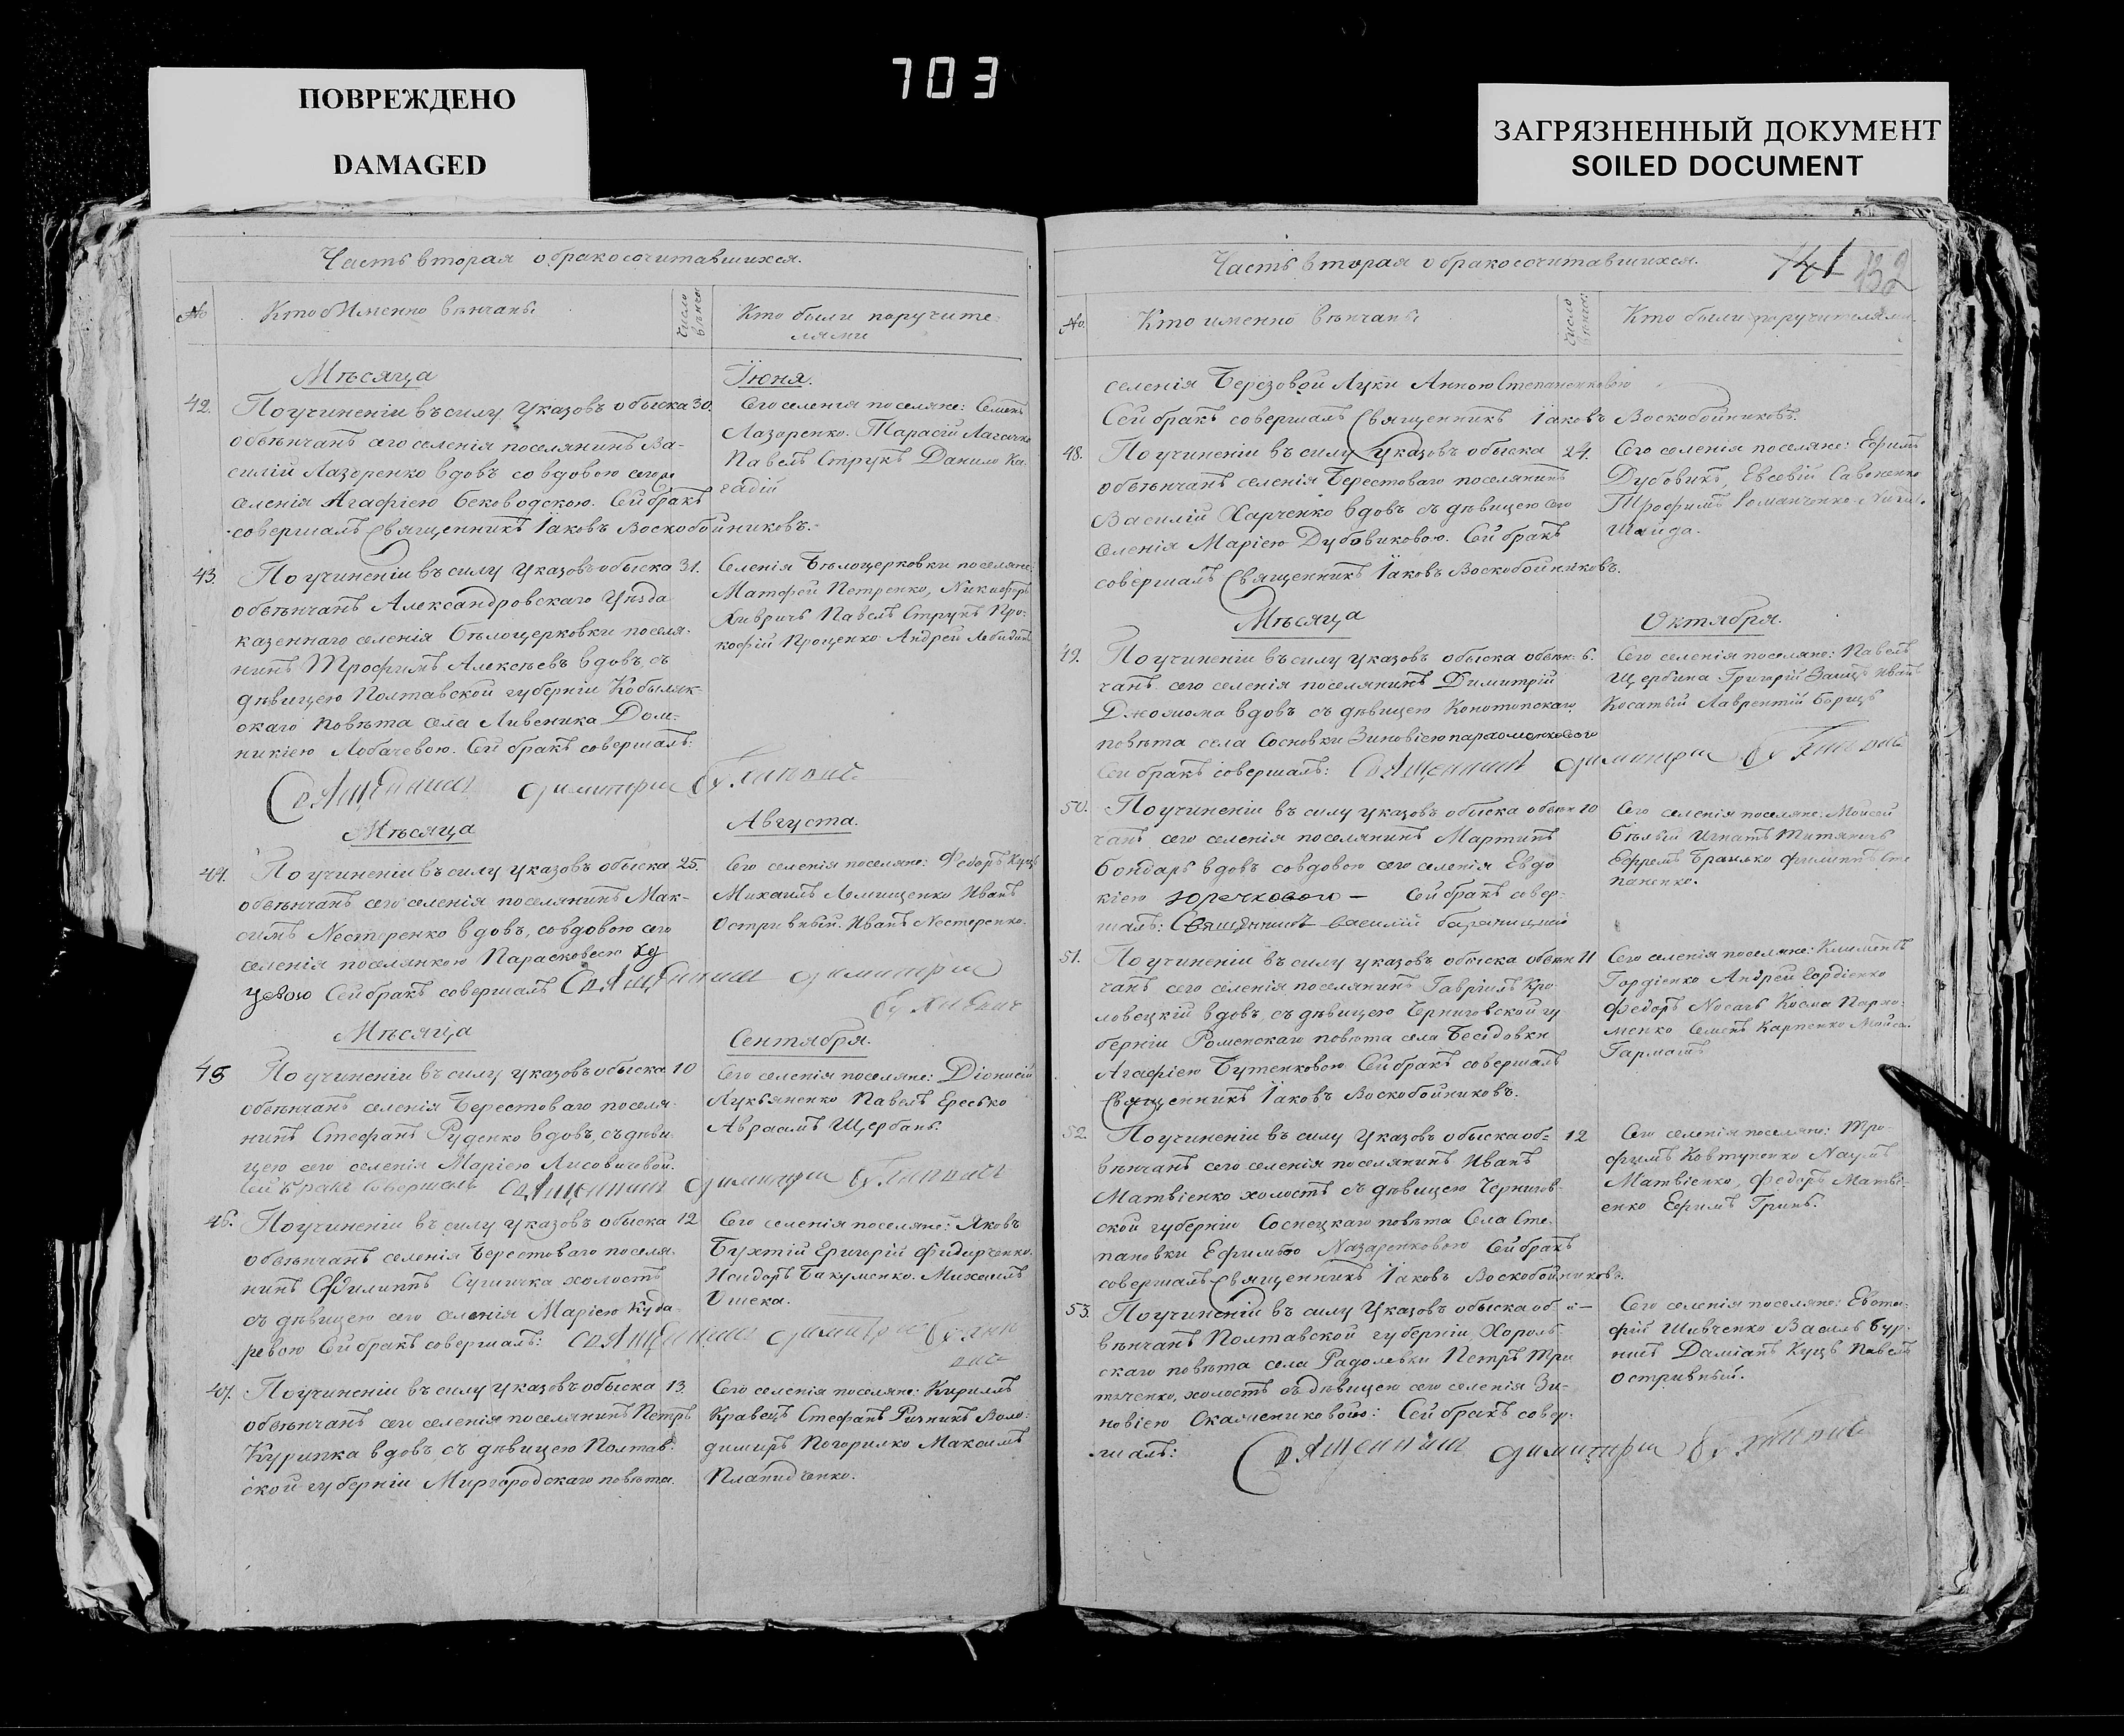 703
ПОВРЕЖДЕНО
DAMAGED
ЗАГРЯЗНЕННЫЙ ДОКУМЕНТ
SOILED DOCUMENT
Часть вторая о бракосочитавшихся.
№
Кто Именно вѣнчаны
Число
Кто были поручите-
лями
Мѣсяца
Їюня.
42.
По учиненіи въ силу указовъ обыска
30.
обвѣнчанъ сего селенія поселянинъ Ва-
силій Лазоренко вдовъ со вдовою сего
селенія Агафіею Беководскою. Сей бракъ
совершалъ Священникъ Їаковъ Воскобойниковъ.
Сего селенія поселяне: Семенъ
Лазоренко. Тарасій
Павелъ Струкъ Данило Ка-
гадій
43.
По учиненіи въ силу указовъ обыска
31.
обвѣнчанъ Александровскаго Уѣзда
казеннаго селенія Бѣлоцерковки поселя-
нинъ Трофимъ Алексѣевъ вдовъ, съ
дѣвицею Полтавской губерніи Кобыляк-
скаго повѣта села Дом-
никіею Лобачевою. Сей бракъ совершалъ:
Священникъ Димитрій
Селенія Бѣлоцерковки поселяне:
Матфей Петренко, Никифоръ
Хивричъ Павелъ Струкъ Про-
кофій Проценко Андрей
Мѣсяца
Августа.
44.
По учиненіи въ силу указовъ обыска
25.
обвѣнчанъ сего селенія поселянинъ Мак-
симъ Нестеренко вдовъ, со вдовою сего
селенія поселянкою Параскевею Ку
цевою Сей бракъ совершалъ Священникъ Димитрій
Сего селенія поселяне: Федоръ Куцъ
Михаилъ Иванъ
Остривный. Иванъ Нестеренко.
Мѣсяца
Сентября.
45
По учиненіи въ силу указовъ обыска
10
обвѣнчанъ селенія Берестоваго поселя-
нинъ Стефанъ Руденко вдовъ, съ дѣви-
цею сего селенія Маріею Лисовиговой.
Сей бракъ совершалъ Священникъ Димитрій
Сего селенія поселяне: Діонисій
Лукьяненко Павелъ Ересько
Авраамъ Щербань.
46.
По учиненіи въ силу указовъ обыска
12
обвѣнчанъ селенія Берестоваго поселя-
нинъ Филиппъ холостъ
съ дѣвицею сего селенія Маріею Куда-
ревою Сей бракъ совершалъ: Священникъ Димитрій
Сего селенія поселяне: Яковъ
Бухтій Григорій Фидирченко.
Исидоръ Бакуменко. Михаилъ
Ошека.
47.
По учиненіи въ силу указовъ обыска
13.
обвѣнчанъ сего селенія поселянинъ Петръ
Курипка вдовъ, съ дѣвицею Полтав-
ской губерніи Миргородскаго повѣта
Сего селенія поселяне: Кирилъ
Кравецъ Стефанъ Ричникъ Воло-
димиръ Погорилко Максимъ
Плапидченко.
Часть вторая о бракосочитавшихся.
141
132
№.
Кто именно вѣнчаны
Число
Кто были поручителями.
селенія Березовой Луки Анною Степаненковою
Сей бракъ совершалъ Священникъ Їаковъ Воскобойниковъ.
48.
По учиненіи въ силу Указовъ обыска
24.
обвѣнчанъ селенія Берестоваго поселянинъ
Василій Харченко вдовъ съ дѣвицею сего
селенія Маріею Дубовиковою. Сей бракъ
совершалъ Священникъ Їаковъ Воскобойниковъ.
Сего селенія поселяне: Ефимъ
Дубовикъ, Евсевій Савоненко
Трофимъ Романченко
Шайда.
Мѣсяца
Октября.
49.
По учиненіи въ силу указовъ обыска обвѣн-
6.
чанъ сего селенія поселянинъ Димитрій
Джомома вдовъ съ дѣвицею Конотопскаго
повѣта села Сосновки Зиновіею пархоменковою
Сей бракъ совершалъ: Священникъ Димитрій
Сего селенія поселяне: Павелъ
Щербина Григорій Заицъ Иванъ
Косатый Лаврентій Борщъ
50.
По учиненіи въ силу указовъ обыска обвѣн
10
чанъ сего селенія поселянинъ Мартинъ
Бондарь вдовъ со вдовою сего селенія Евдо
кіею юречковою — Сей бракъ совер-
шалъ: Священникъ василій
Сего селенія поселяне: Моисей
Бѣлый Игнатъ Титяничъ
Ефремъ Бранько Филиппъ Сте
паненко.
51.
По учиненіи въ силу указовъ обыска обвѣн
11
чанъ сего селенія поселянинъ Гавріилъ Кро
ловецкій вдовъ, съ дѣвицею Черниговской гу
берніи Роменскаго повѣта села Бесѣдовки
Агафіею Бутенковою Сей бракъ совершалъ
Священникъ Їаковъ Воскобойниковъ.
Сего селенія поселяне: Климентъ
Гордіенко Андрей Гордіенко
Федоръ Носачь Косма Пархо-
менко Семенъ Карпенко
Гармашъ
52.
По учиненіи въ силу Указовъ обыска об=
12
вѣнчанъ сего селенія поселянинъ Иванъ
Матвіенко холостъ съ дѣвицею Чернигов-
ской губерніи Сосницкаго повѣта Села Сте-
пановки Ефиміею Назаренковою Сей бракъ
совершалъ Священникъ Їаковъ Воскобойниковъ.
Сего селенія поселяне: Тро-
фимъ Ковтуненко Наумъ
Матвіенко, Федоръ Матві-
енко Ефимъ Гринь.
53.
По учиненіи въ силу Указовъ обыска об
вѣнчанъ Полтавской губерніи Хороль-
скаго повѣта села Радолевки Петръ Три
тяченко, холостъ съ дѣвицею сего селенія Зи-
новіею Скамениковою: Сей бракъ совер-
шалъ: Священникъ Димитрій
Сего селенія поселяне: Евста-
фій Шивченко Василь Бур-
Даміанъ Куцъ Павелъ
Остривный.